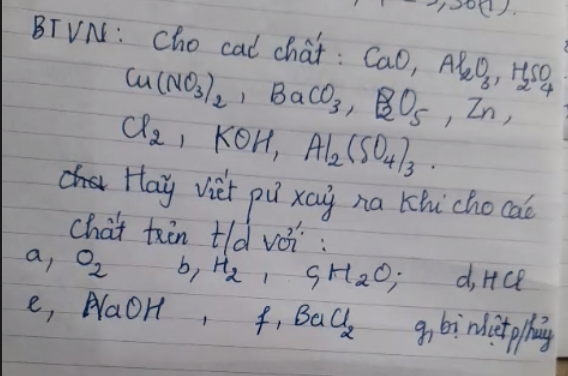 = 3,36(l).
BTVN: Cho các chất: CaO, Al2O3, H2SO4
Cu(NO3)2, BaCO3, P2O5, Zn,
Cl2, KOH, Al2(SO4)3.
Hãy viết pứ xảy ra khi cho các
chất trên t/d với:
a, O2 b, H2, c, H2O; d, HCl
e, NaOH, f, BaCl2 g, bị nhiệt p/hủy